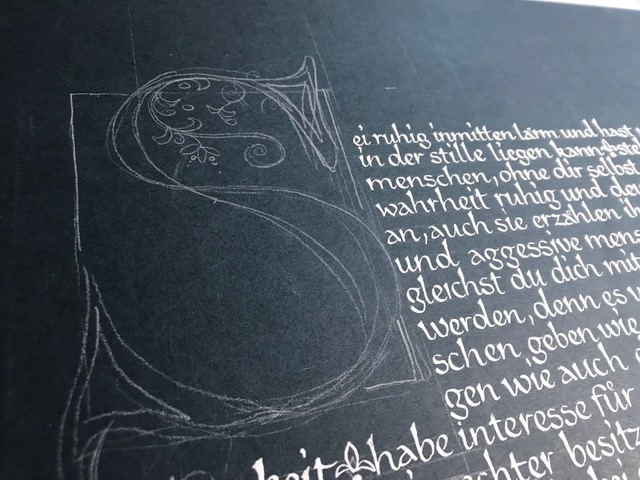 S
ei ruhig inmitten lärm und hast
in der stille liegen kann
menschen, ohne dir selbst
wahrheit ruhig und
an, auch sie erzählen
und aggessive mens
gleichst du dich mit
werden, denn es
schen, geben wie
gen wie auch
heit habe interesse für
echter besitz